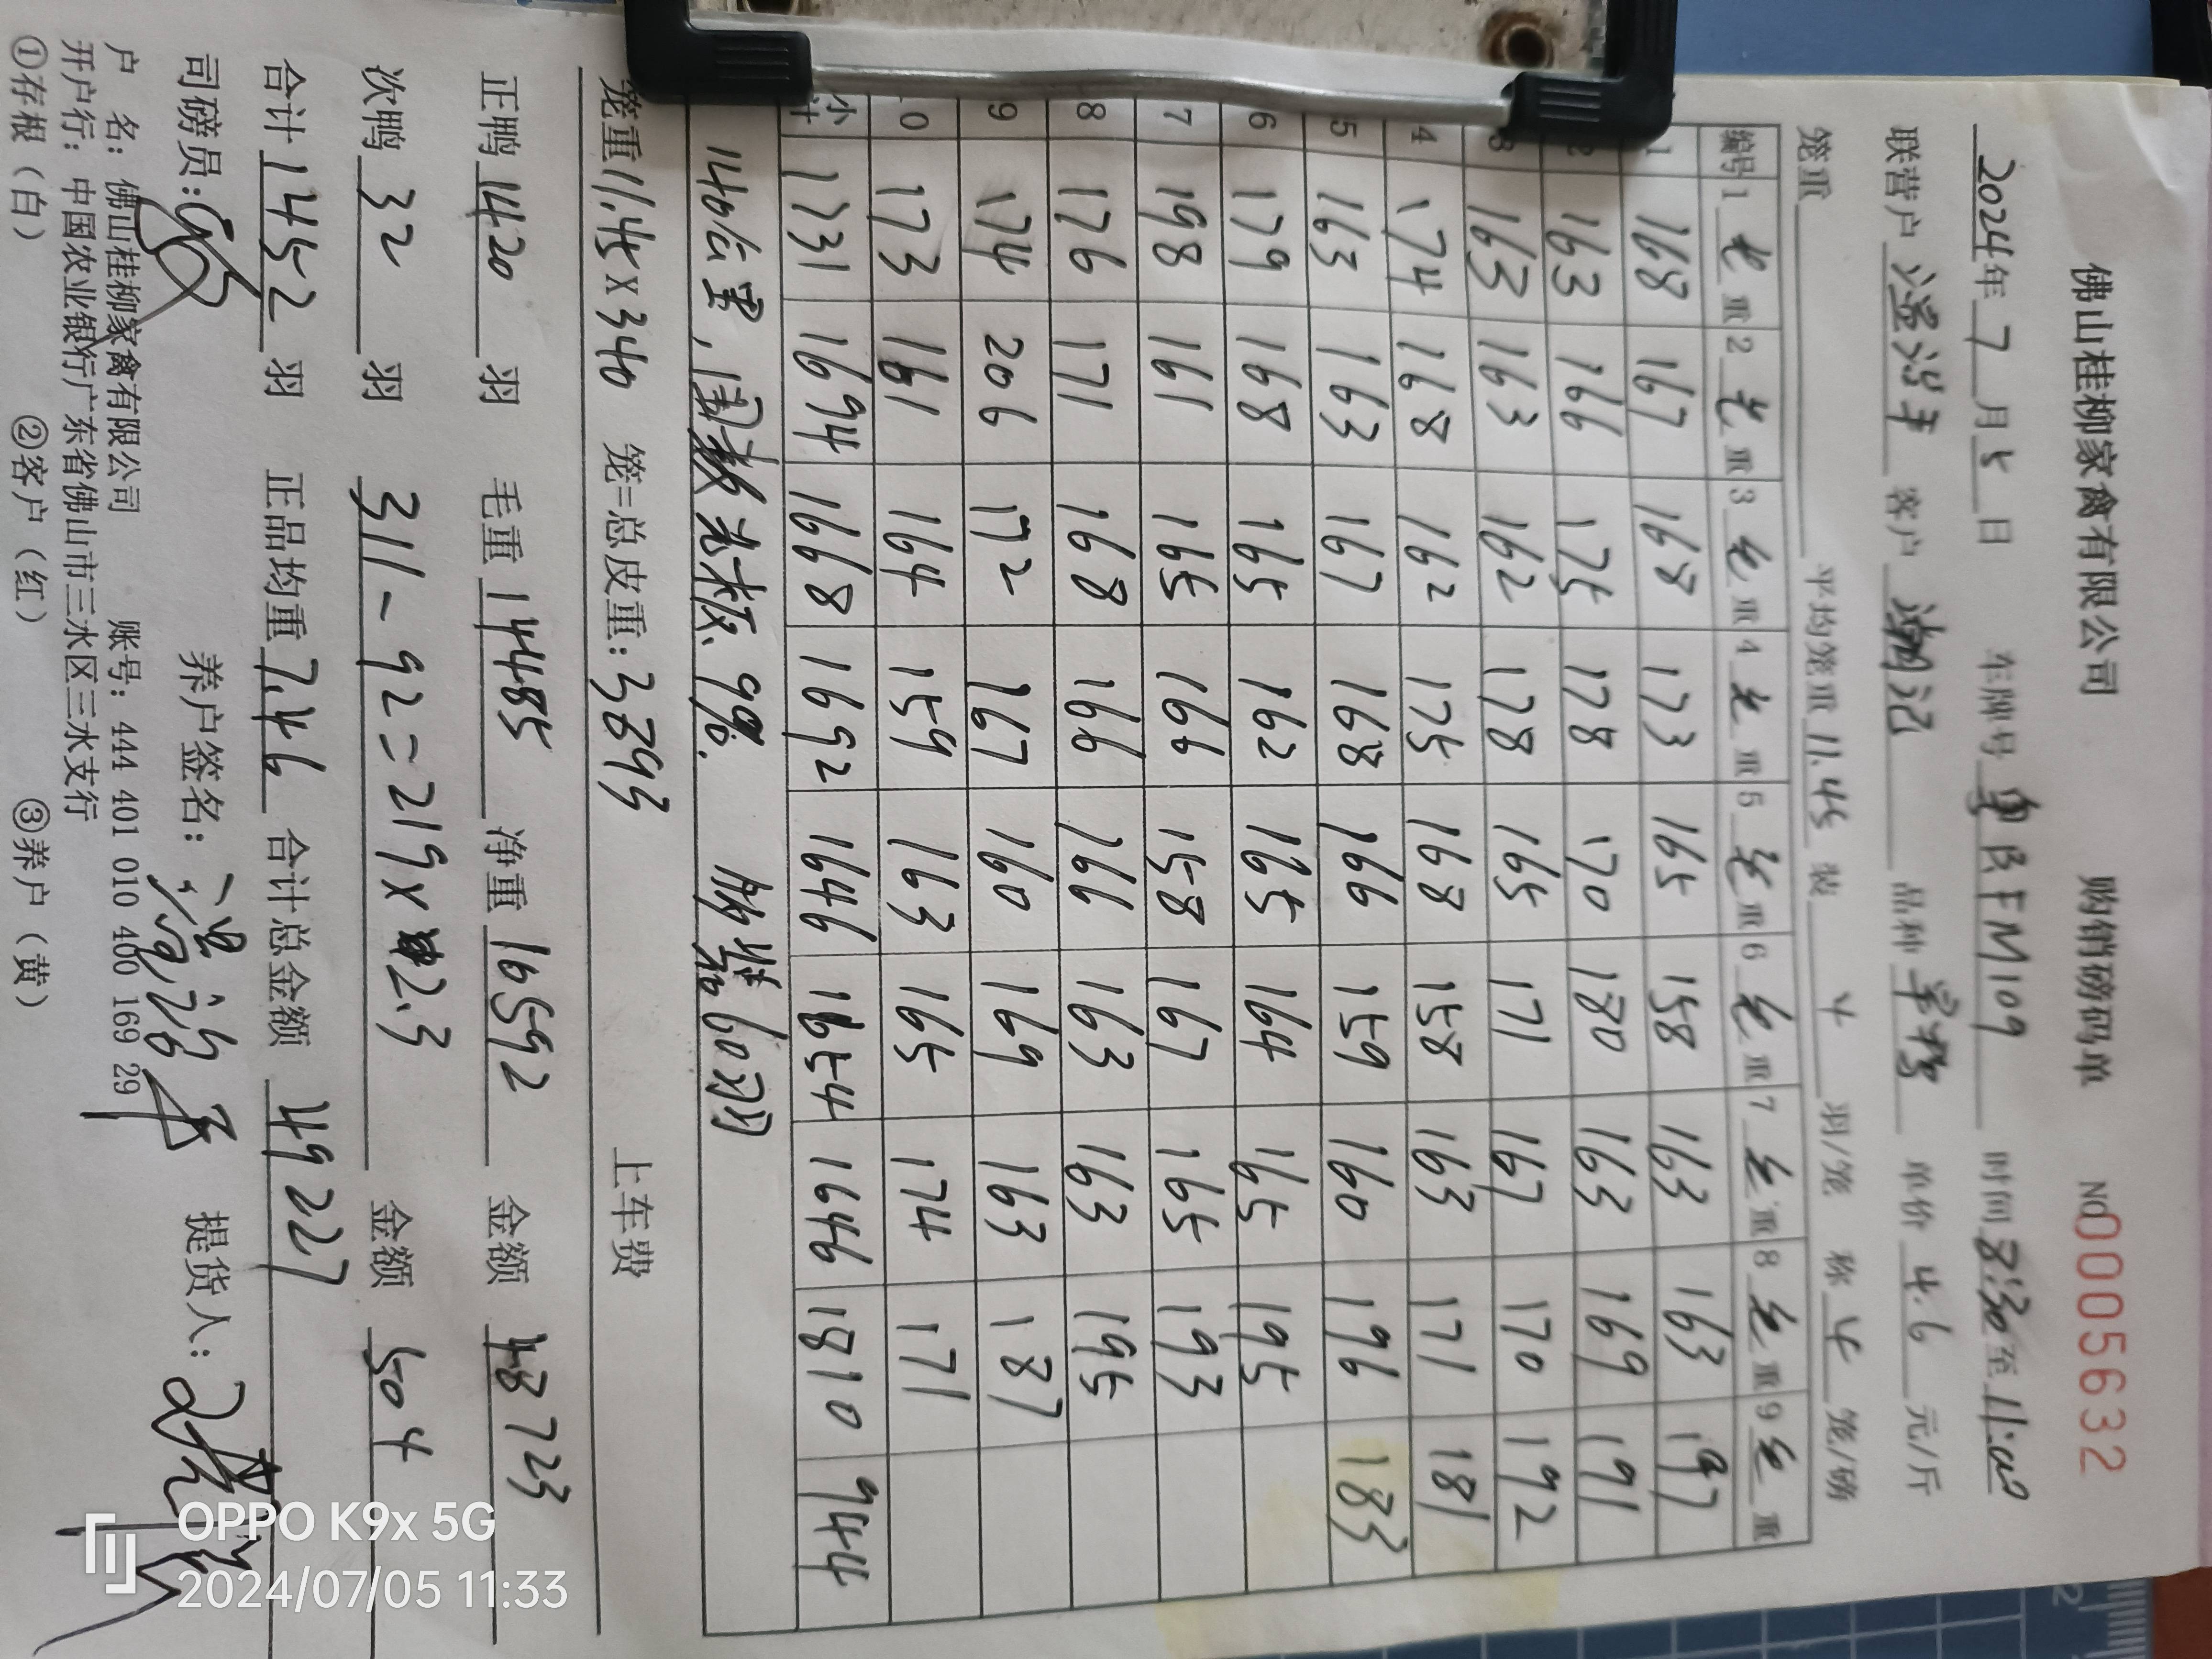 佛山桂柳家禽有限公司 购销磅码单 No 0005632
2024年7月5日 车牌号 粤BFM109 时间 8:30至11:00
联营户 客户 品种 单价 4.6 元/斤
笼重 平均笼重 11.45 装 4 羽/笼 称 4 笼/磅
编号 1 毛重 2 毛重 3 毛重 4 毛重 5 毛重 6 毛重 7 毛重 8 毛重 9 毛重
1 168 167 168 173 165 158 163 163 197
2 163 166 175 178 170 180 163 169 191
3 163 163 162 178 165 171 167 170 192
4 174 168 162 175 168 158 163 171 181
5 163 163 167 168 166 159 160 196 183
6 179 168 165 162 165 164 165 195
7 198 161 165 166 158 167 165 193
8 176 171 168 166 166 163 163 195
9 174 206 172 167 160 169 163 187
10 173 161 164 159 163 165 174 171
小计 1731 1694 1668 1692 1646 1654 1646 1810 944
笼重 11.45×340 笼=总皮重：3893 上车费
正鸭 1420 羽 毛重 14485 净重 10592 金额 48723
次鸭 32 羽 311-92=219×2.3 金额 504
合计 1452 羽 正品均重 7.46 合计总金额 49227
司磅员： 养户签名： 提货人：
户 名：佛山桂柳家禽有限公司 账号：444 401 010 400 169 29
开户行：中国农业银行广东省佛山市三水区三水支行
①存根（白） ②客户（红） ③养户（黄）
OPPO K9x 5G
2024/07/05 11:33